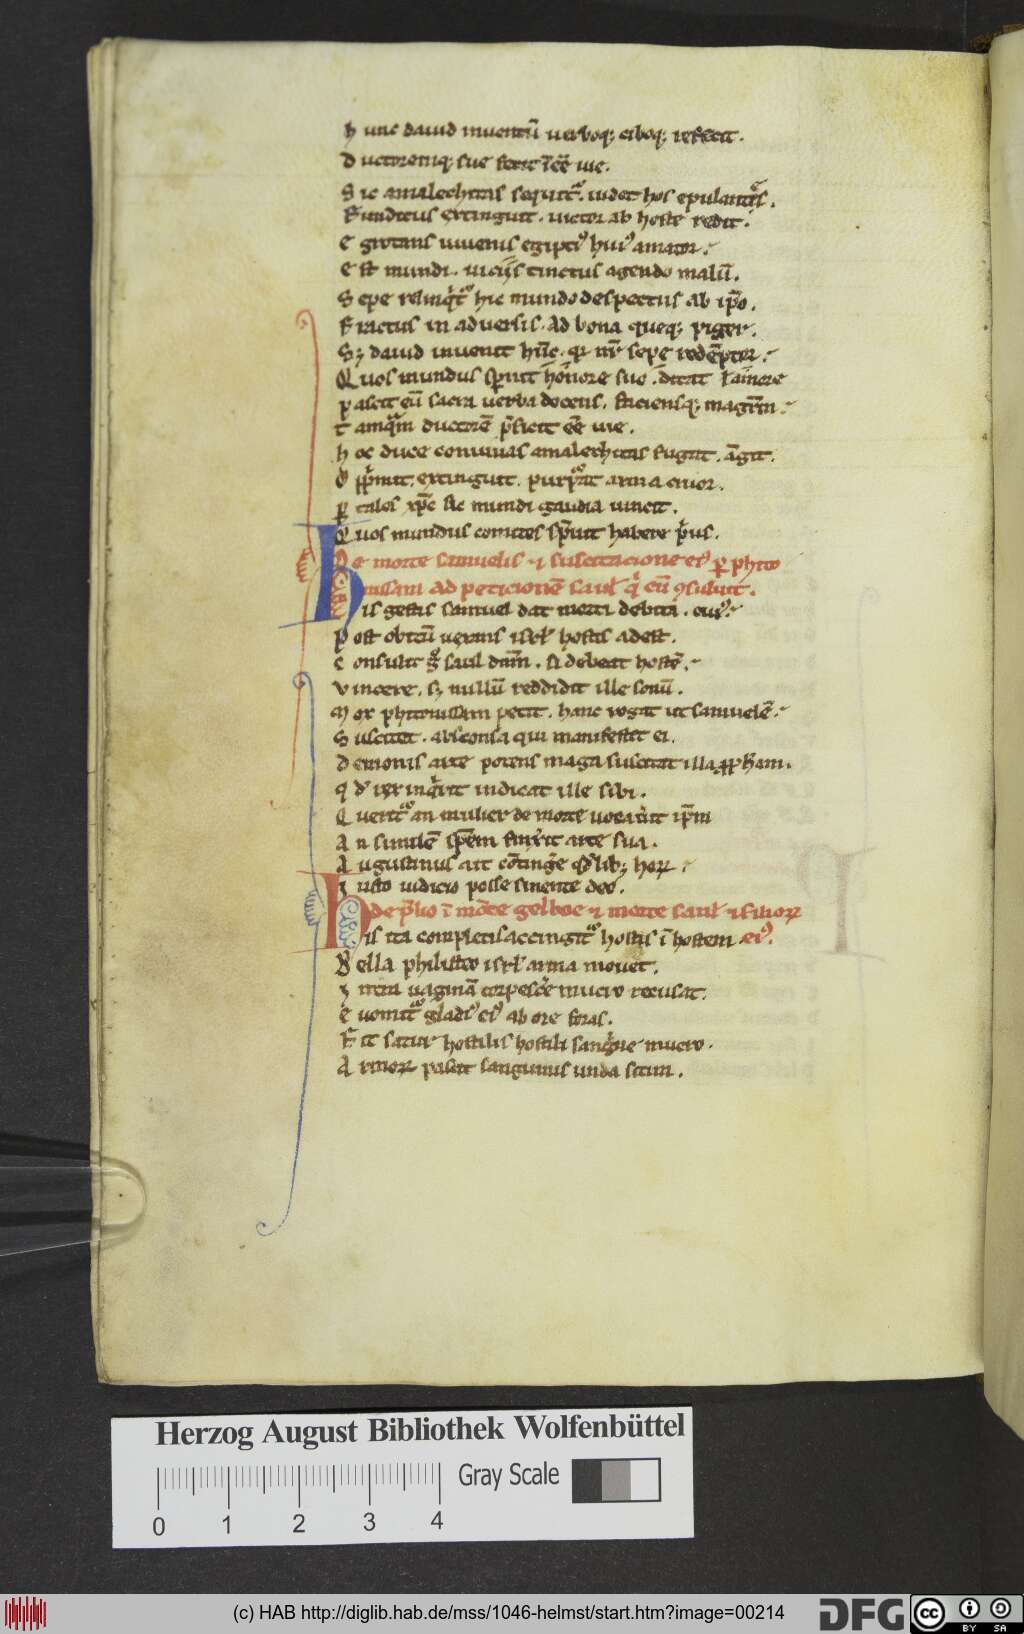 h unc dauid inuentū uerboq; ciboq; refecit.
D uctoremq; sue fecit ēē uie.
S ic amalechitas sequit᷑. uidet hos epulantes.
F unditus extinguit. uictor ab hoste redit.
E grotans iuuenis egipti᷒ hui᷒ amator.
E st mundi. uiciis tinctus agendo malū.
S epe relinq̄t᷑ hic mundo despectus ab ip̄o.
F ractus in aduersis. ad bona queq; piger.
S; dauid inuenit hūc. qr nr̄ sepe redēptor.
Q uos mundus spuit honore suo. ditat
p ascit eū sacra uerba docens. faciensq;
t amq̄m ductorē p̄ficit ēē uie.
h oc duce conuiuas amalechitas fugat. āgit.
extinguit. arma cruor.
ꝑ tales xp̄c sic mundi gaudia uincit.
Q uos mundus comites sp̄uit habere p̄us.
De morte samuelis ⁊ suscitacione ei᷒ ꝑ phito
nissam ad peticionē saul᷒ q̇ eū ꝯsuluit.
His gestis samuel dat morti debita. cui᷒.
P ost obitū uexans isrl̄ hostis adest.
C onsulit ḡ saul dn̄m. si debeat hostē.
V incere. s; nullū reddidit ille sonū.
M ox phitonissam petit. hanc rogat ut samuelē.
S uscitet. absconsa qui manifestet ei.
D emonis arte potens maga suscitat illa ꝓpham.
q d᷒ rex inq̇rit indicat ille sibi.
Q uerit᷑ an mulier de morte uocarit ip̄m
A n similē sp̄em finxerit arte sua.
A ugustinus ait cōtinge᷒ q̄dlib; hoꝝ.
I usto iudicio posse sinente deo.
de p̄lio ī mōte gelboe ⁊ morte saul᷒ ⁊ filioꝝ
His ita completis accingit᷑ hostis ī hostem ei᷒.
B ella philisteo isrl̄ arma mouet.
I ntra uaginā torpesce᷒ mucro recusat.
E uomit᷑ gladi᷒ ei᷒ ab ore foras.
F it satur hostilis hostili sanguine mucro.
A rmoꝝ pascit sanguinis unda sitim.
Herzog August Bibliothek Wolfenbüttel
Gray Scale
0 1 2 3 4
(c) HAB http://diglib.hab.de/mss/1046-helmst/start.htm?image=00214
DFG
cc BY SA